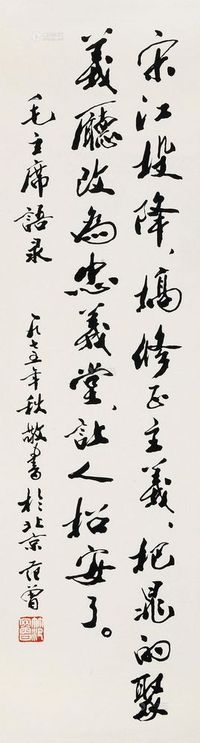 宋江投降、搞修正主义、把晁的聚
義廳改為忠義堂、让人招安了。
毛主席語录
一九七五年秋敬書於北京范曾